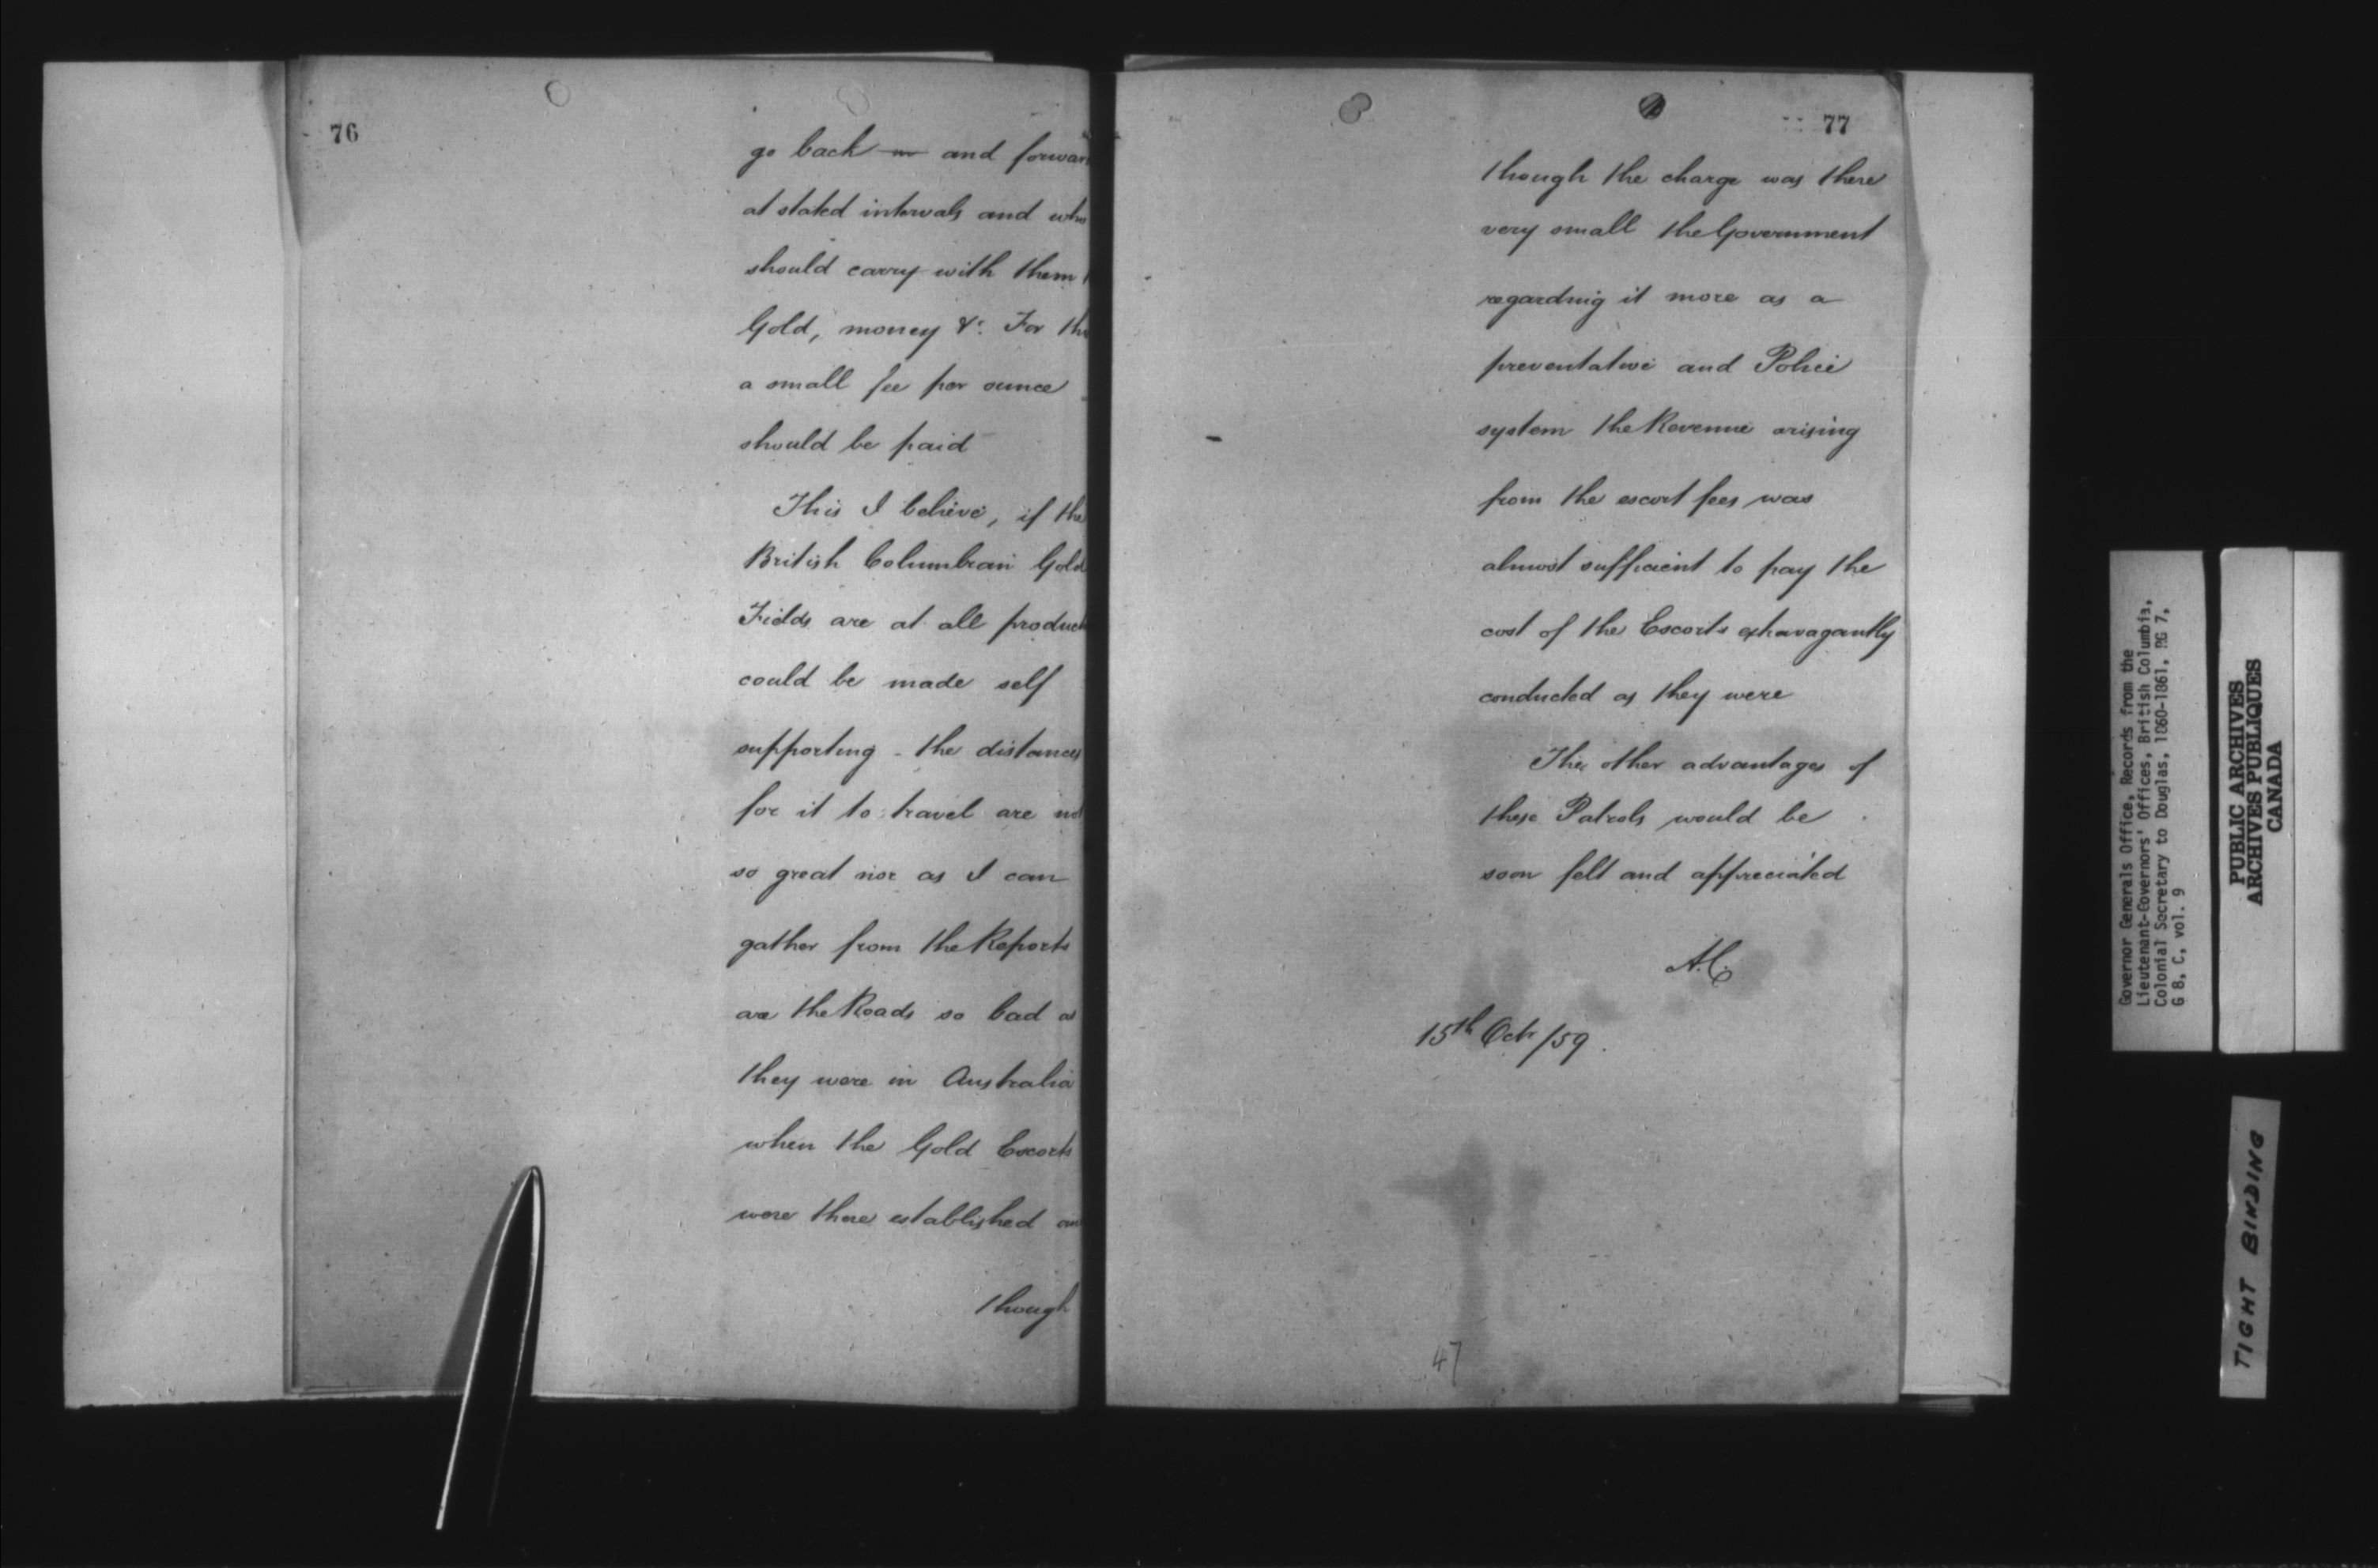 76
go back and forwar
at stated intervals and who
should carry with them
Gold, money &c. For th
a small fee per ounce
should be paid
This I believe, if the
British Columbian Gold
Fields are at all product
could be made self
supporting - the distances
for it to travel are not
so great nor as I can
gather from the Reports
are the Roads so bad as
they were in Australia
when the Gold Escorts
were there established an
though
77
though the charge was there
very small the Government
regarding it more as a
preventative and Police
system the Revenue arising
from the escort fees was
almost sufficient to pay the
cost of the Escorts extravagantly
conducted as they were
The other advantages of
these Patrols would be
soon felt and appreciated
A.C.
15th Octr /59.
47
Governor Generals Office, Records from the
Lieutenant-Governors' Offices, British Columbia,
Colonial Secretary to Douglas, 1860-1861, RG 7,
G 8, C, vol. 9
PUBLIC ARCHIVES
ARCHIVES PUBLIQUES
CANADA
TIGHT BINDING